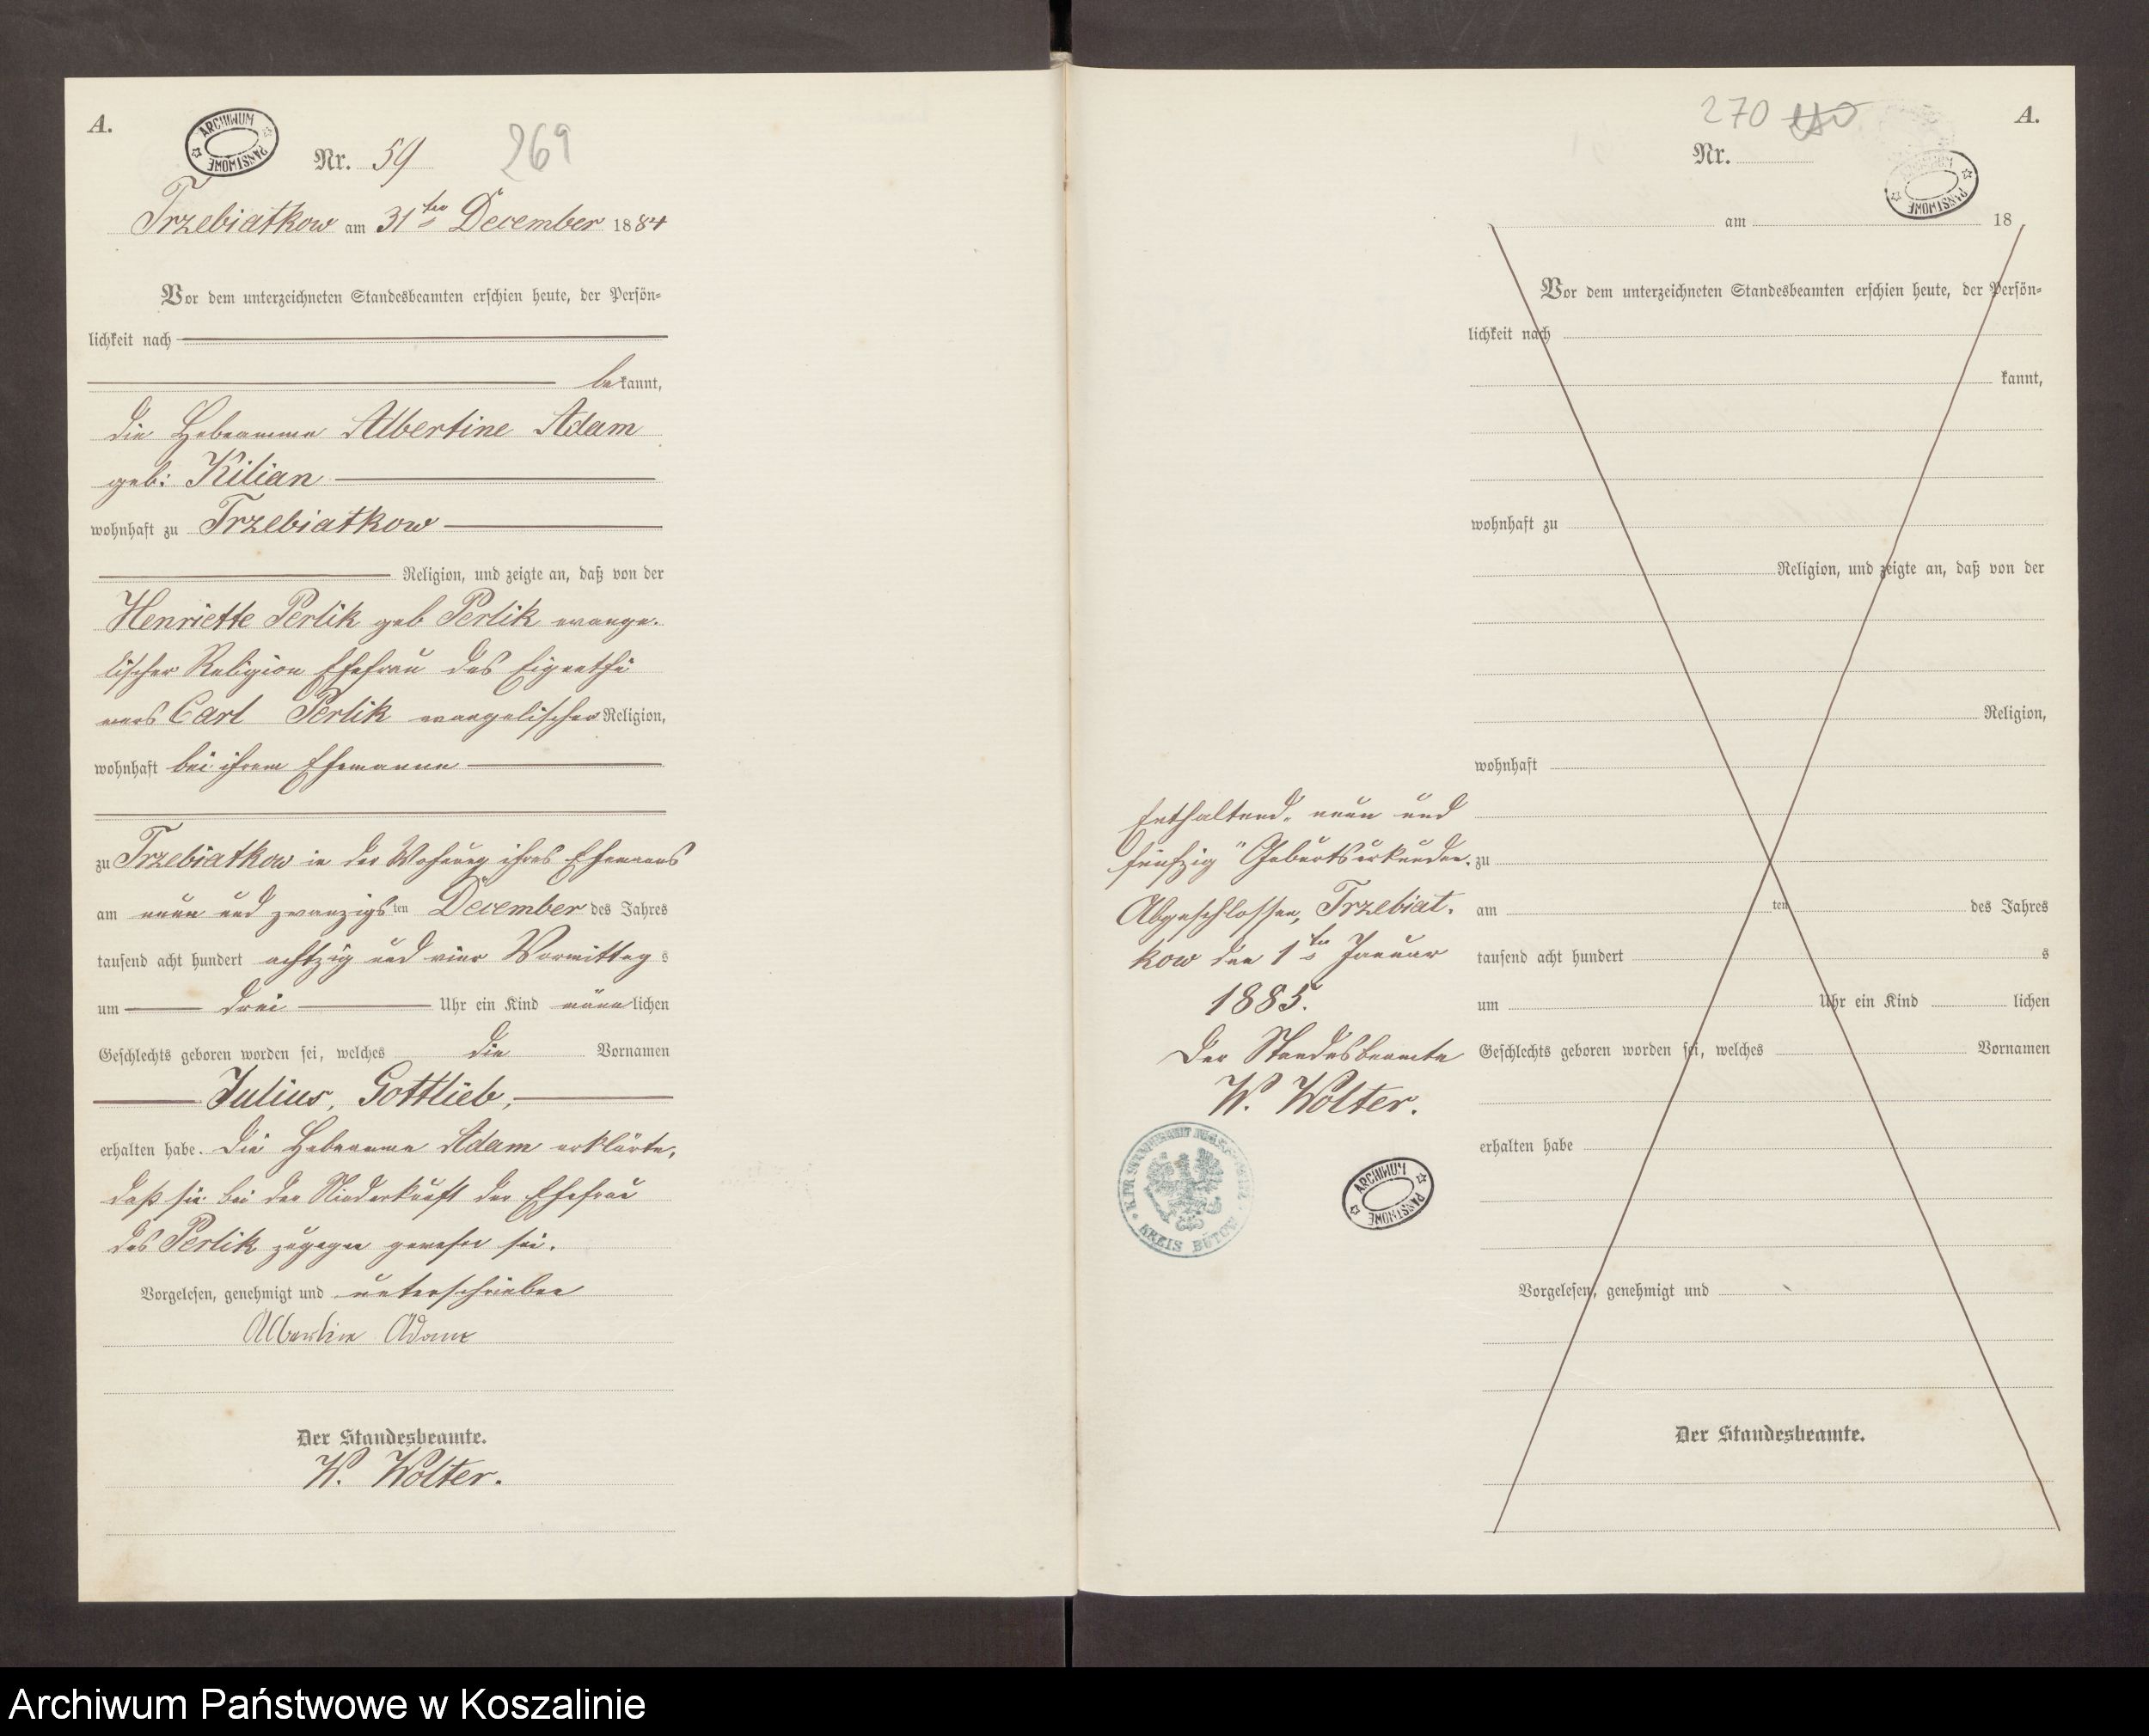 A.
ARCHIWUM PAŃSTWOWE
Nr. 59
269
Trzebiatkow am 31ten December 1884
Vor dem unterzeichneten Standesbeamten erschien heute, der Persön-
lichkeit nach
bekannt,
die Hebeamme Albertine Adam
geb: Kilian
wohnhaft zu Trzebiatkow
Religion, und zeigte an, daß von der
Henriette Perlik geb Perlik evange-
lischer Religion Ehefrau des Eigenthü
mers Carl Perlik evangelischer Religion,
wohnhaft bei ihrem Ehemanne
zu Trzebiatkow in der Wohnung ihres Ehemanns
am neun und zwanzigsten December des Jahres
tausend acht hundert achtzig und vier Vormittags
um drei Uhr ein Kind männlichen
Geschlechts geboren worden sei, welches die Vornamen
Julius, Gottlieb,
erhalten habe. Die Hebeamme Adam erklärte,
daß sie bei der Niederkunft der Ehefrau
des Perlik zugegen gewesen sei.
Vorgelesen, genehmigt und unterschrieben
Albertine Adam
Der Standesbeamte.
W. Wolter.
270
A.
Nr.
ARCHIWUM PAŃSTWOWE
am 18
Vor dem unterzeichneten Standesbeamten erschien heute, der Persön-
lichkeit nach
kannt,
wohnhaft zu
Religion, und zeigte an, daß von der
Religion,
wohnhaft
zu
am ten des Jahres
tausend acht hundert s
um Uhr ein Kind lichen
Geschlechts geboren worden sei, welches Vornamen
erhalten habe
Vorgelesen, genehmigt und
Der Standesbeamte.
Enthaltend, neun und
fünfzig Geburtsurkunden.
Abgeschlossen, Trzebiat-
kow den 1ten Januar
1885.
Der Standesbeamte
W. Wolter.
KREIS BÜTOW
ARCHIWUM PAŃSTWOWE
Archiwum Państwowe w Koszalinie